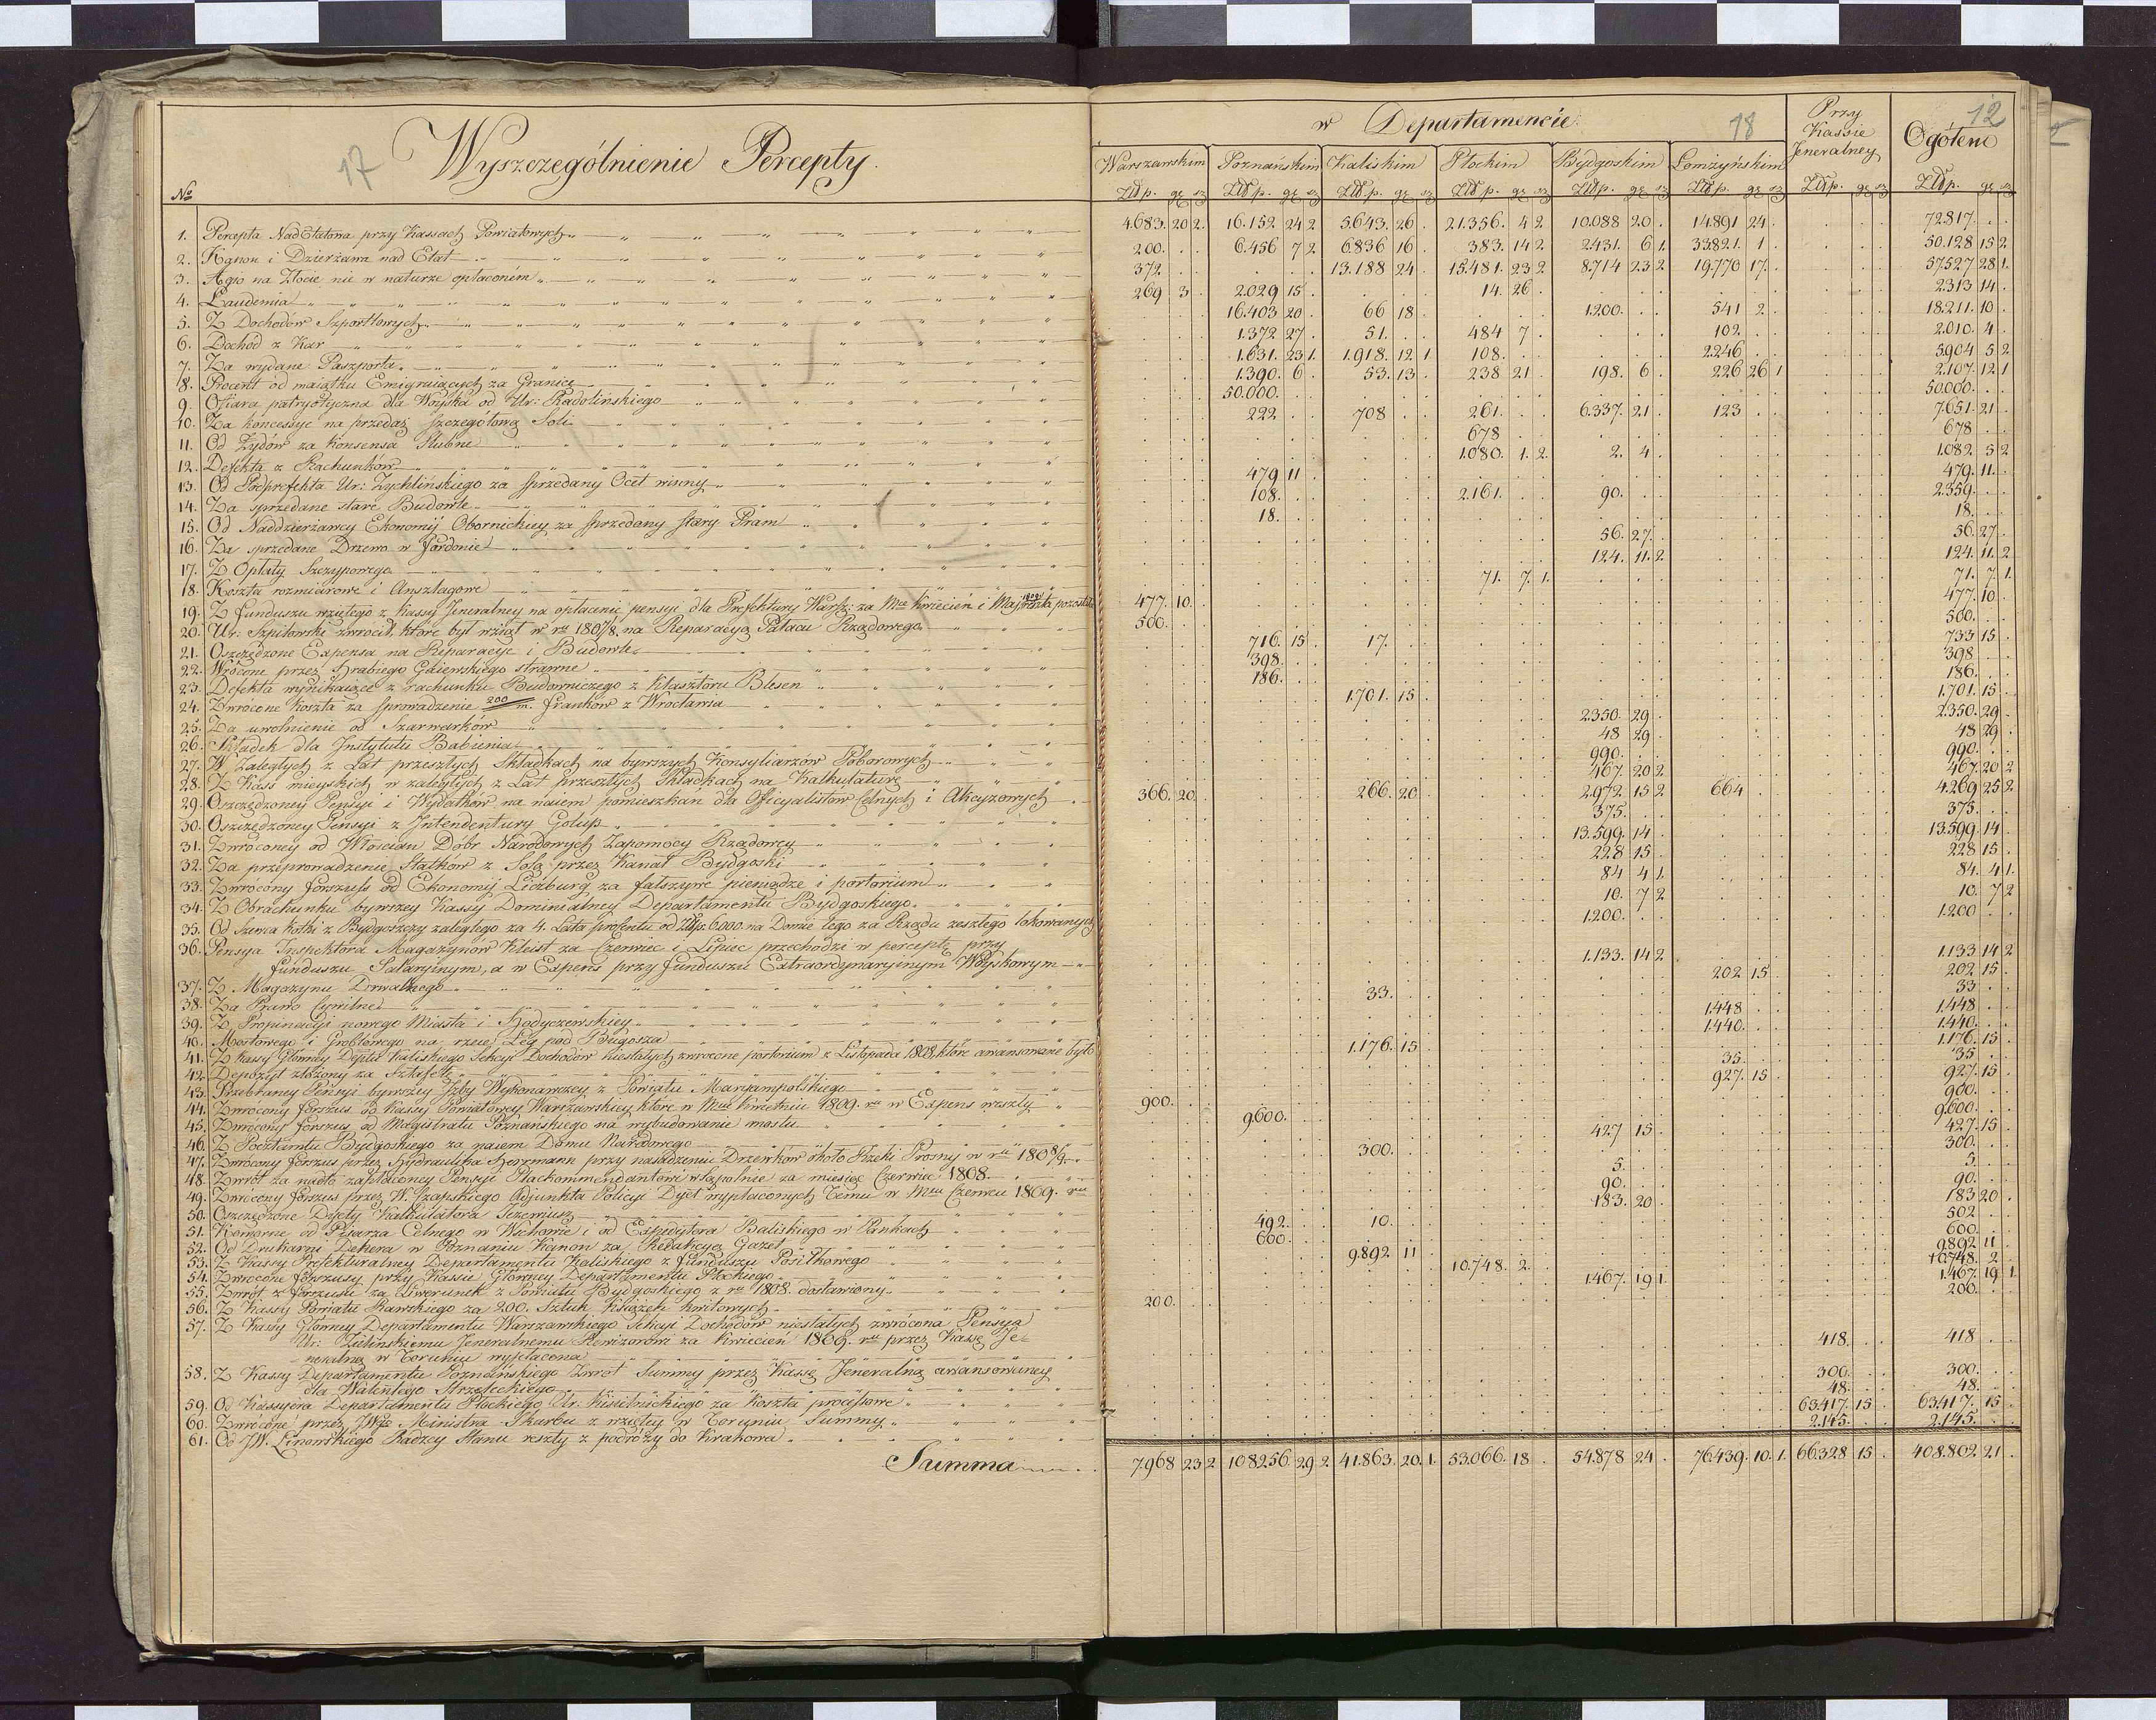 17
Wyszczególnienie Percepty.
w Departamencie.
18
Przy Kassie Jeneralney
12
Ogółem
Warszawskim Poznańskim Kaliskim Płockim Bydgoskim Łomżyńskim
No Złdp. gr sz Złdp. gr sz Złdp. gr sz Złdp. gr sz Złdp. gr sz Złdp. gr sz Złdp. gr sz Złdp. gr sz
1. Percepta NadEtatowa przy Kassach Powiatowych 4.683. 20 2. 16.152. 24 2 5.643. 26 21.356. 4 2 10.088 20 14.891 24 72.817
2. Kanon i Dzierżawa nad Etat 200. 6.456 7 2 6.836 16 383. 14 2 2.431. 6 1. 33.821. 1 50.128 15 2
3. Agio na Złocie nie w naturze opłaconém 372. 13.188 24 15.481. 23 2 8.714 23 2 19.770 17. 57.527 28 1.
4. Laudemia 269 3 2.029 15 14. 26 2.313 14
5. Z Dochodów Szportlowych 16.403 20 66 18 1.200. 541 2 18.211. 10
6. Dochód z Kar 1.372 27 51. 484 7 102. 2.010. 4
7. Za wydane Paszporta 1.631. 23 1. 1.918. 12 1 108. 2.246 5.904 5 2
8. Procent od maiątku Emigruiących za Granicę 1.390. 6 53. 13 238 21 198. 6 226 26 1 2.107. 12 1
9. Ofiara patryotyczna dla Woyska od Ur: Radolińskiego 50.000. 50.000.
10. Za koncessye na przedaż szczegółową Soli 222. 708 261. 6.337. 21 123 7.651. 21
11. Od Żydów za Konsensa Ślubne 678 678
12. Defekta z Rachunków 1.080. 1. 2. 2. 4 1.082. 5 2
13. Od Podprefekta Ur: Zychlińskiego za sprzedany Ocet winny 479 11 479. 11.
14. Za sprzedane staré Budowle 108. 2.161. 90. 2.359.
15. Od Naddzierżawcy Ekonomij Obornickiey za sprzedany stary Pram 18. 18.
16. Za sprzedane Drzewo w Fordonie 56. 27. 56. 27
17. Z Opłaty Szczypowego 124. 11. 2 124. 11. 2
18. Koszta rozmiarowe i Anszlagowe 71. 7. 1. 71. 7. 1.
19. Z funduszu wziętego z Kassy Jeneralney na opłacenie pensyi dla Prefektury Warsz: za Mce Kwiecień i Maj 1809 reszta pozostała 477. 10. 477. 10
20. Ur. Szpilowski zwrócił, które był wziął w r. 1807/8. na Reparacyą Pałacu Rządowego 500. 500.
21. Oszczędzone Expensa na Reparacyje i Budowle 716. 15 17. 733 15
22. Wrócone przez Hrabiego Gaiewskiego strawne 398. 398
23. Defekta wynikaiące z rachunku Budowniczego z Klasztoru Blesen 186. 186.
24. Zwrócone Koszta za sprowadzenie 200/m. franków z Wrocławia 1.701. 15 1.701. 15
25. Za uwolnienie od Szarwarków 2.350. 29 2.350. 29
26. Składek dla Instytutu Babienia 48 29 48 29
27. W Zaległych z Lat przeszłych Składkach na bywszych Konsyliarzów Poborowych 990. 990.
28. Z Kass mieyskich w zaległych z Lat przeszłych Składkach na Kalkulaturę 467. 20 2 467. 20 2
29. Oszczędzoney Pensyi i Wydatków na naiem pomieszkań dla Officyalistów Celnych i Akcyzowych 366. 20 266. 20 2.972. 15 2 664 4.269 25 2
30. Oszczędzoney Pensyi z Intendentury Golub 375. 375.
31. Zwróconey od Włościan Dóbr Narodowych Zapomocy Rządowey 13.599. 14 13.599. 14
32. Za przeprowadzenie Statków z Solą przez Kanał Bydgoski 228 15 228 15
33. Zwrócony forszuss od Ekonomij Liczburg za fałszywe pieniądze i portorium 84 4 1. 84. 4 1.
34. Z Obrachunku bywszey Kassy Dominialney Departamentu Bydgoskiego 10. 7 2 10. 7 2
35. Od Szewca Kotki z Bydgoszczy zaległego za 4. Lata procentu od Złp. 6.000. na Domie iego za Rządu zeszłego lokowanych 1.200. 1.200
36. Pensya Inspektora Magazynów Kleist za Czerwiec i Lipiec przechodzi w perceptę przy
funduszu Salaryinym, a w Expens przy funduszu Extraordynaryinym Woyskowym 1.133. 14 2 1.133 14 2
37. Z Magazynu Drewalnego 202 15 202 15
38. Za Prawo Cywilne 33. 33
39. Z Propinacyi nowego Miasta i Hodyczewskiey 1.448 1.448
40. Mostowego i Groblowego na rzece Łeg pod Biegosza 1.440. 1.440.
41. Z Kassy Głowney Dep​tu Kaliskiego Sekcyi Dochodów niestałych zwrócone portorium z Listopada 1808 które awansowane było 1.176. 15 1.176. 15
42. Depozyt złożony za Sztafetę 35. 35
43. Przebraney Pensyi bywszey Izby Wykonawczey z Powiatu Maryampolskiego 927. 15 927. 15
44. Zwrócony forszus od Kassy Powiatowey Warszawskiey które w Mcu Kwietniu 1809. r. w Expens weszły 900. 900.
45. Zwrócony forszus od Magistratu Poznańskiego na wybudowanie mostu 9.600. 9.600.
46. Z Pocztamtu Bydgoskiego za naiem Domu Narodowego 427 15 427. 15
47. Zwrócony forszus przez Hydraulika Herrmann przy nasadzeniu Drzewków około Rzeki Prosny w r. 1808/9. 300. 300.
48. Zwrot za nadto zapłaconey Pensyi Płackommendantowi w Łapolnie za miesiąc Czerwiec 1808. 5. 5
49. Zwrócony forszus przez W. Szapskiego Adjunkta Policyi Dyet wypłaconych Temu w Mcu Czerwcu 1809. r. 90. 90.
50. Oszczędzone Dyety Kalkulatora Szeniusz 183. 20 183 20
51. Komorne od Pisarza Celnego w Wschowie i od Expedytora Baliskiego w Pankach 492. 10. 502
52. Od Drukarni Dekera w Poznaniu Kanon za Redakcyą Gazet 600. 600.
53. Z Kassy Prefekturalney Departamentu Kaliskiego z funduszu Posiłkowego 9.892 11 9.892 11
54. Zwrócone forszusy przy Kassie Głowney Departamentu Płockiego 10.748. 2. 10.748. 2
55. Zwrot z forszusu za Liwerunek z Powiatu Bydgoskiego z r. 1808. dostawiony 1.467. 19 1. 1.467. 19 1.
56. Z Kassy Powiatu Rawskiego za 200. Sztuk Książek kwitowych 200. 200.
57. Z Kassy Głowney Departamentu Warszawskiego Sekcyi Dochodów niestałych zwrócona Pensya
Ur: Zielińskiemu Jeneralnemu Rewizorowi za Kwiecień 1809. r. przez Kassę Je-
neralną w Toruniu wypłacona 418. 418
58. Z Kassy Departamentu Poznańskiego Zwrot Summy przez Kassę Jeneralną awansowaney
dla Walentego Strzeleckiego 300. 300.
59. Od Kassyera Departamentu Płockiego Ur. Kisielnickiego za Koszta processowe 48. 48.
60. Zwrócone przez JWgo Ministra Skarbu z wziętey w Toruniu Summy 63.417. 15 63.417. 15
61. Od JW. Linowskiego Radzcy Stanu reszty z podróży do Krakowa 2.145. 2.145.
Summa 7.968 23 2 108.256. 29 2. 41.863. 20. 1. 53.066. 18 54.878 24 76.439. 10. 1. 66.328 15 408.802. 21